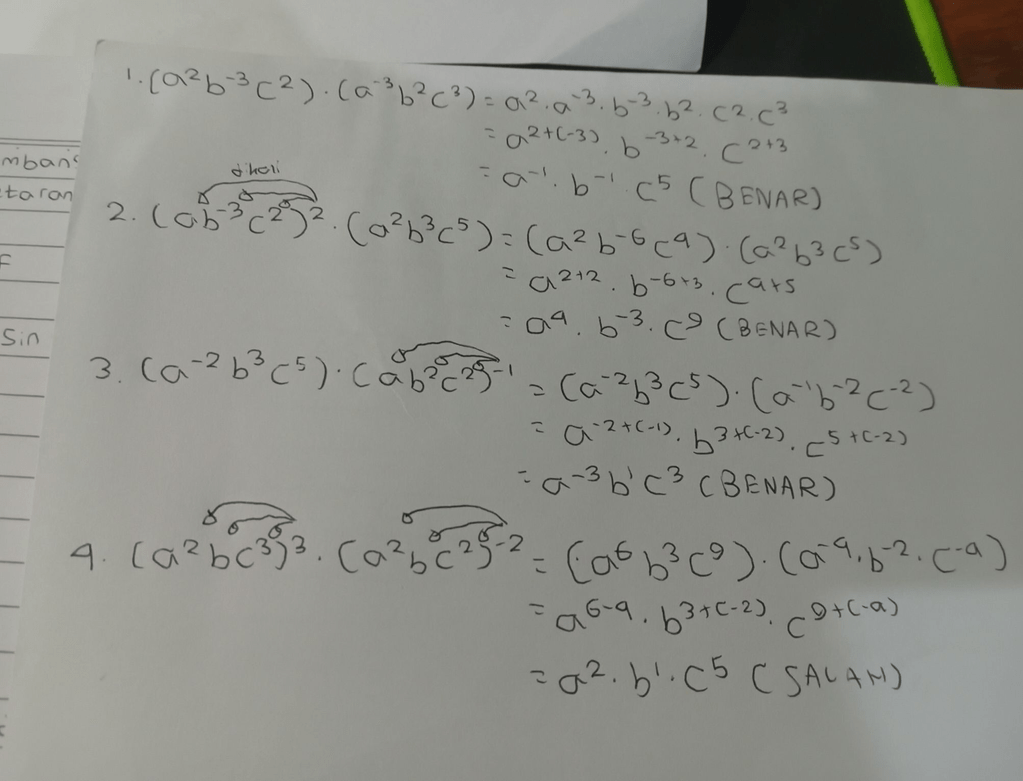 1. (a²b⁻³c²) . (a⁻³b²c³) = a². a⁻³. b⁻³. b². c². c³
= a²⁺⁽⁻³⁾. b⁻³⁺². c²⁺³
= a⁻¹. b⁻¹. c⁵ (BENAR)
dikali
2. (ab⁻³c²)². (a²b³c⁵) = (a²b⁻⁶c⁴) . (a²b³c⁵)
= a²⁺². b⁻⁶⁺³. c⁴⁺⁵
= a⁴. b⁻³. c⁹ (BENAR)
3. (a⁻²b³c⁵) . (ab²c²)⁻¹ = (a⁻²b³c⁵) . (a⁻¹b⁻²c⁻²)
= a⁻²⁺⁽⁻¹⁾. b³⁺⁽⁻²⁾. c⁵⁺⁽⁻²⁾
= a⁻³b¹c³ (BENAR)
4. (a²bc³)³. (a²bc²)⁻² = (a⁶b³c⁹) . (a⁻⁴. b⁻². c⁻⁴)
= a⁶⁻⁴. b³⁺⁽⁻²⁾. c⁹⁺⁽⁻⁴⁾
= a². b¹. c⁵ (SALAH)
taran
F
Sin